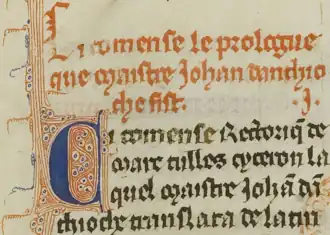 Ci comense le prologue
que maistre Johan danthio
che fist. .I.
Ci comense Rectoriq de
marc tulles cyceron la
quel maistre Johan dan
thioche translata de latin